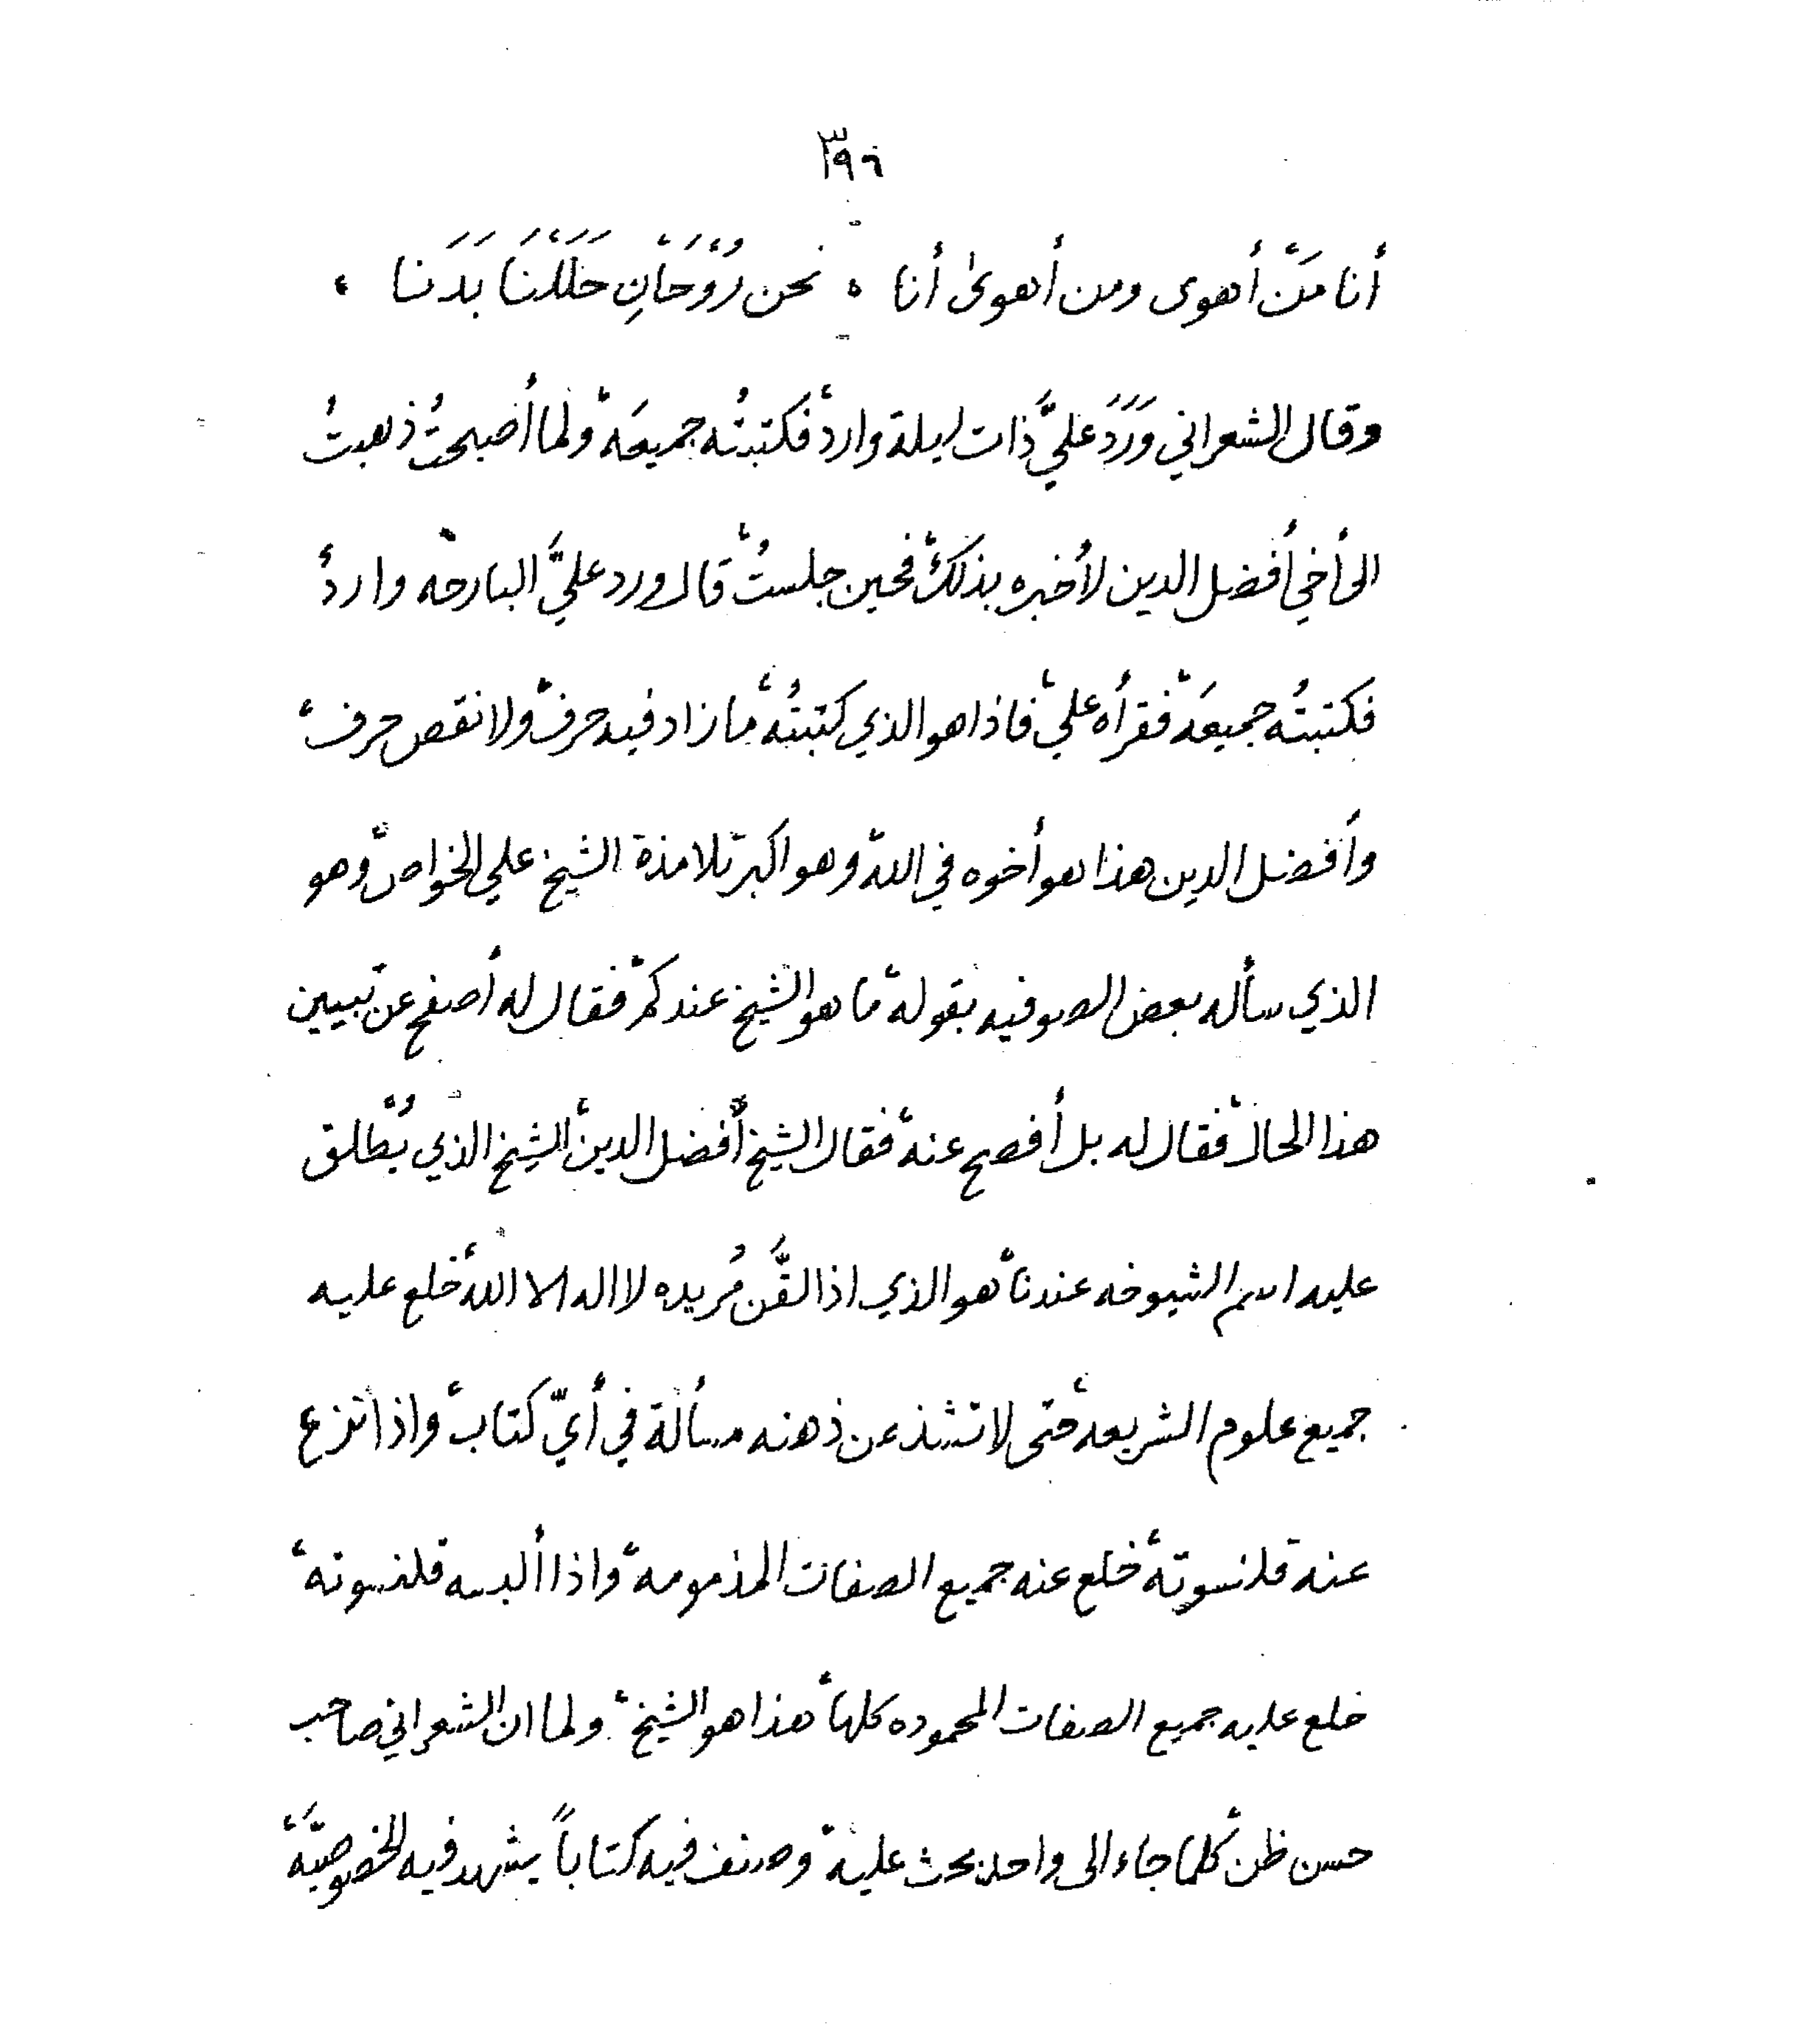 ٣٩٦
أنا مَنْ أهوى ومن أهوىٰ أنا ، نحن رُوْحَانِ حَلَلْنَا بَدَنا ،
وقال الشعراني وَرَدَ عليَّ ذات ليلة وارد، فكتبتُه جميعَه، ولما أصبحتُ ذهبتُ
الى أخي أفضل الدين لأخبره بذلك، فحين جلستُ، قال ورد عليَّ البارحه واردٌ
فكتبتُه جميعَه، فقرأه علي، فاذا هو الذي كتبتُه، ما زاد فيه حرف، ولا نقص حرف،
وأفضل الدين هذا هو أخوه في الله، وهو اكبر تلامذة الشيخ علي الخواص، وهو
الذي سأله بعض الصوفيه بقوله، ما هو الشيخ عندكم، فقال له أصفح عن تبيين
هذا الحال، فقال له بل أفصح عنه، فقال الشيخ أفضل الدين، الشيخ الذي يُطلق
عليه اسم الشيوخه عندنا، هو الذي اذا لقَّن مُريده لا اله الا الله، خلع عليه
جميع علوم الشريعه، حتى لا تشذ عن ذهنه مسألة في أيّ كتاب، واذا نزع
عنه قلنسوته، خلع عنه جميع الصفات المذمومه، واذا ألبسه قلنسوته،
خلع عليه جميع الصفات المحموده كلها، هذا هو الشيخ، ولما ان الشعراني صاحب
حسن ظن، كلما جاء الى واحد بحث عليه، وصنف فيه كتاباً يشهد فيه الخصوصيَّه،